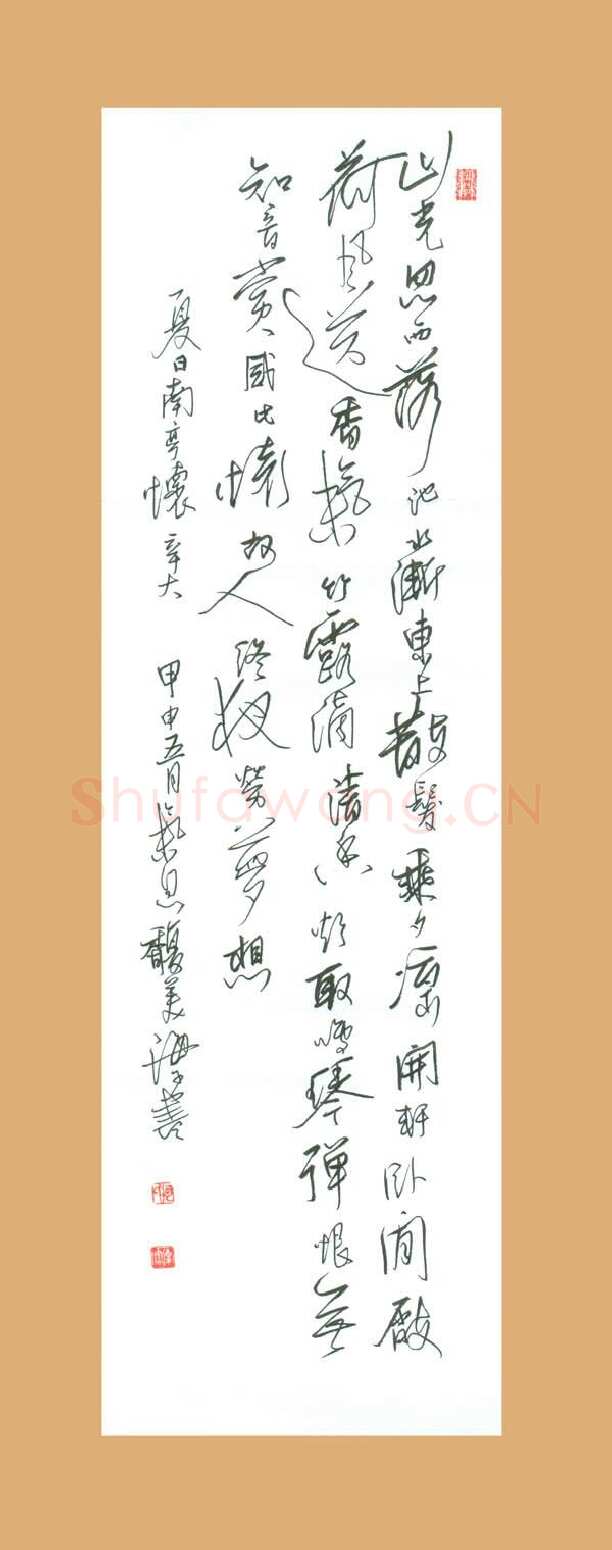 山光忽西落池漸東上散髮乘夕涼開軒卧閒敞
荷風送香氣竹露滴清響欲取鳴琴彈恨無
知音賞感此懷故人終夜勞夢想
夏日南亭懷辛大 甲申五月書
Shufawang.CN